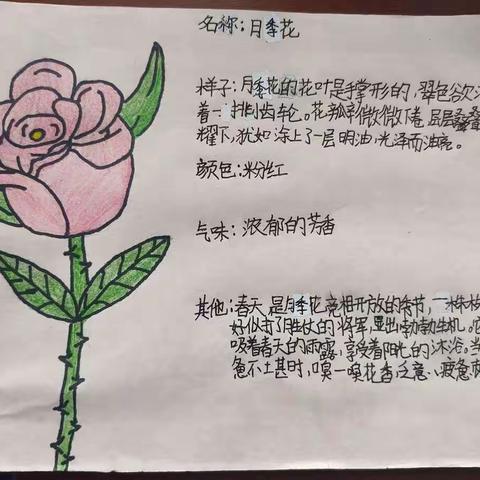 名称:月季花
样子:月季花的花叶是手掌形的,翠色欲
着一排小齿轮。花瓣微微下卷 层层叠叠
耀下,犹如涂上了一层明油,光泽而油亮。
颜色:粉红
气味:浓郁的芳香
其他:春天是月季花亮相开放的季节,一株株
好似打了胜仗的将军,显出勃勃生机。
吸着春天的雨露,享受着阳光的沐浴。当
急不土甚时,嗅一嗅花香,乏意、疲惫